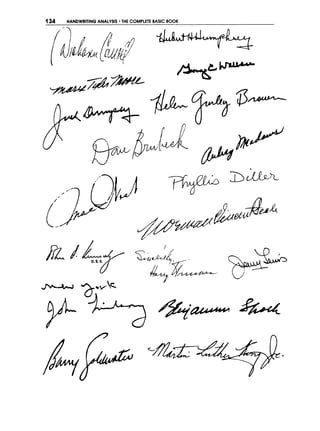 134 HANDWRITING ANALYSIS • THE COMPLETE BASIC BOOK
Hubert H Humphrey
Johnny Carson
George C Wallace
Marie Tyler Moore
Jack Dempsey
Helen Gurley Brown
Dave Brubeck
Audrey Meadows
Phyllis Diller
Norman Vincent Peale
John F. Kennedy
Sincerely,
Harry Truman
Jerry Lewis
New York
John Lindsay
Benjamin Spock
Barry Goldwater
Martin Luther King Jr.